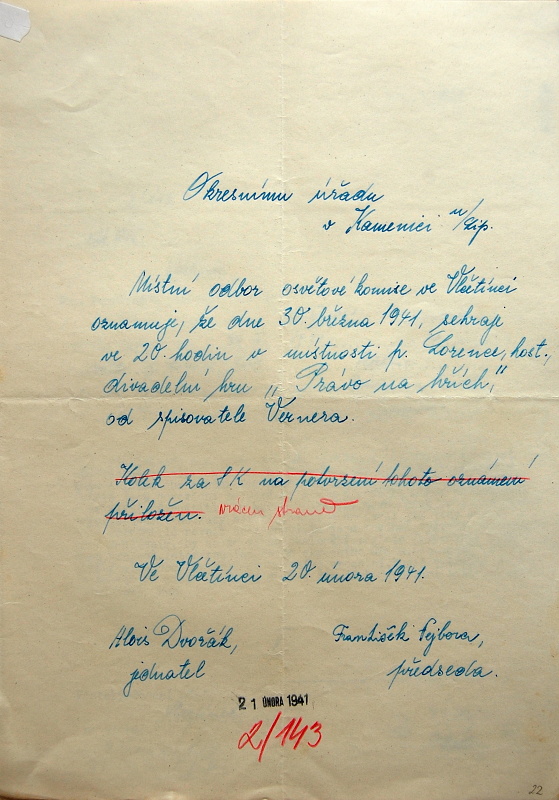 Okresnímu úřadu
v Kamenici n/Lip.
Místní odbor osvětové komise ve Vlčetínci
oznamuje, že dne 30. března 1941, sehraje
ve 20. hodin v místnosti p. Lorence, host.,
divadelní hru „Právo na hřích",
od spisovatele Vernera.
Kolek za 5K na potvrzení tohoto oznámení
přiložen. vrácen straně
Ve Vlčetínci 20. února 1941.
Alois Dvořák, František Nejbora,
jednatel předseda.
21 ÚNORA 1941
2/143
22